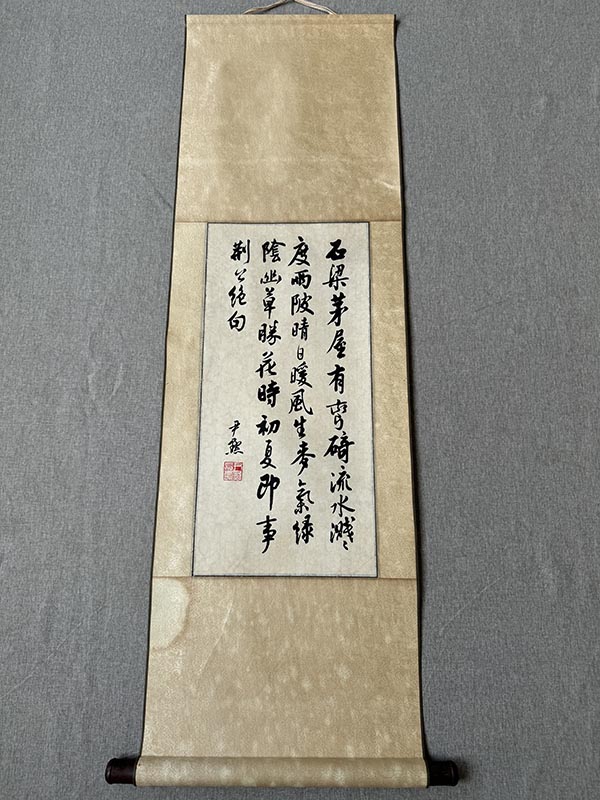 石梁茅屋有彎碕流水濺〻
度兩陂晴日暖風生麥氣緑
陰幽草勝花時初夏即事
荆公絕句
尹默